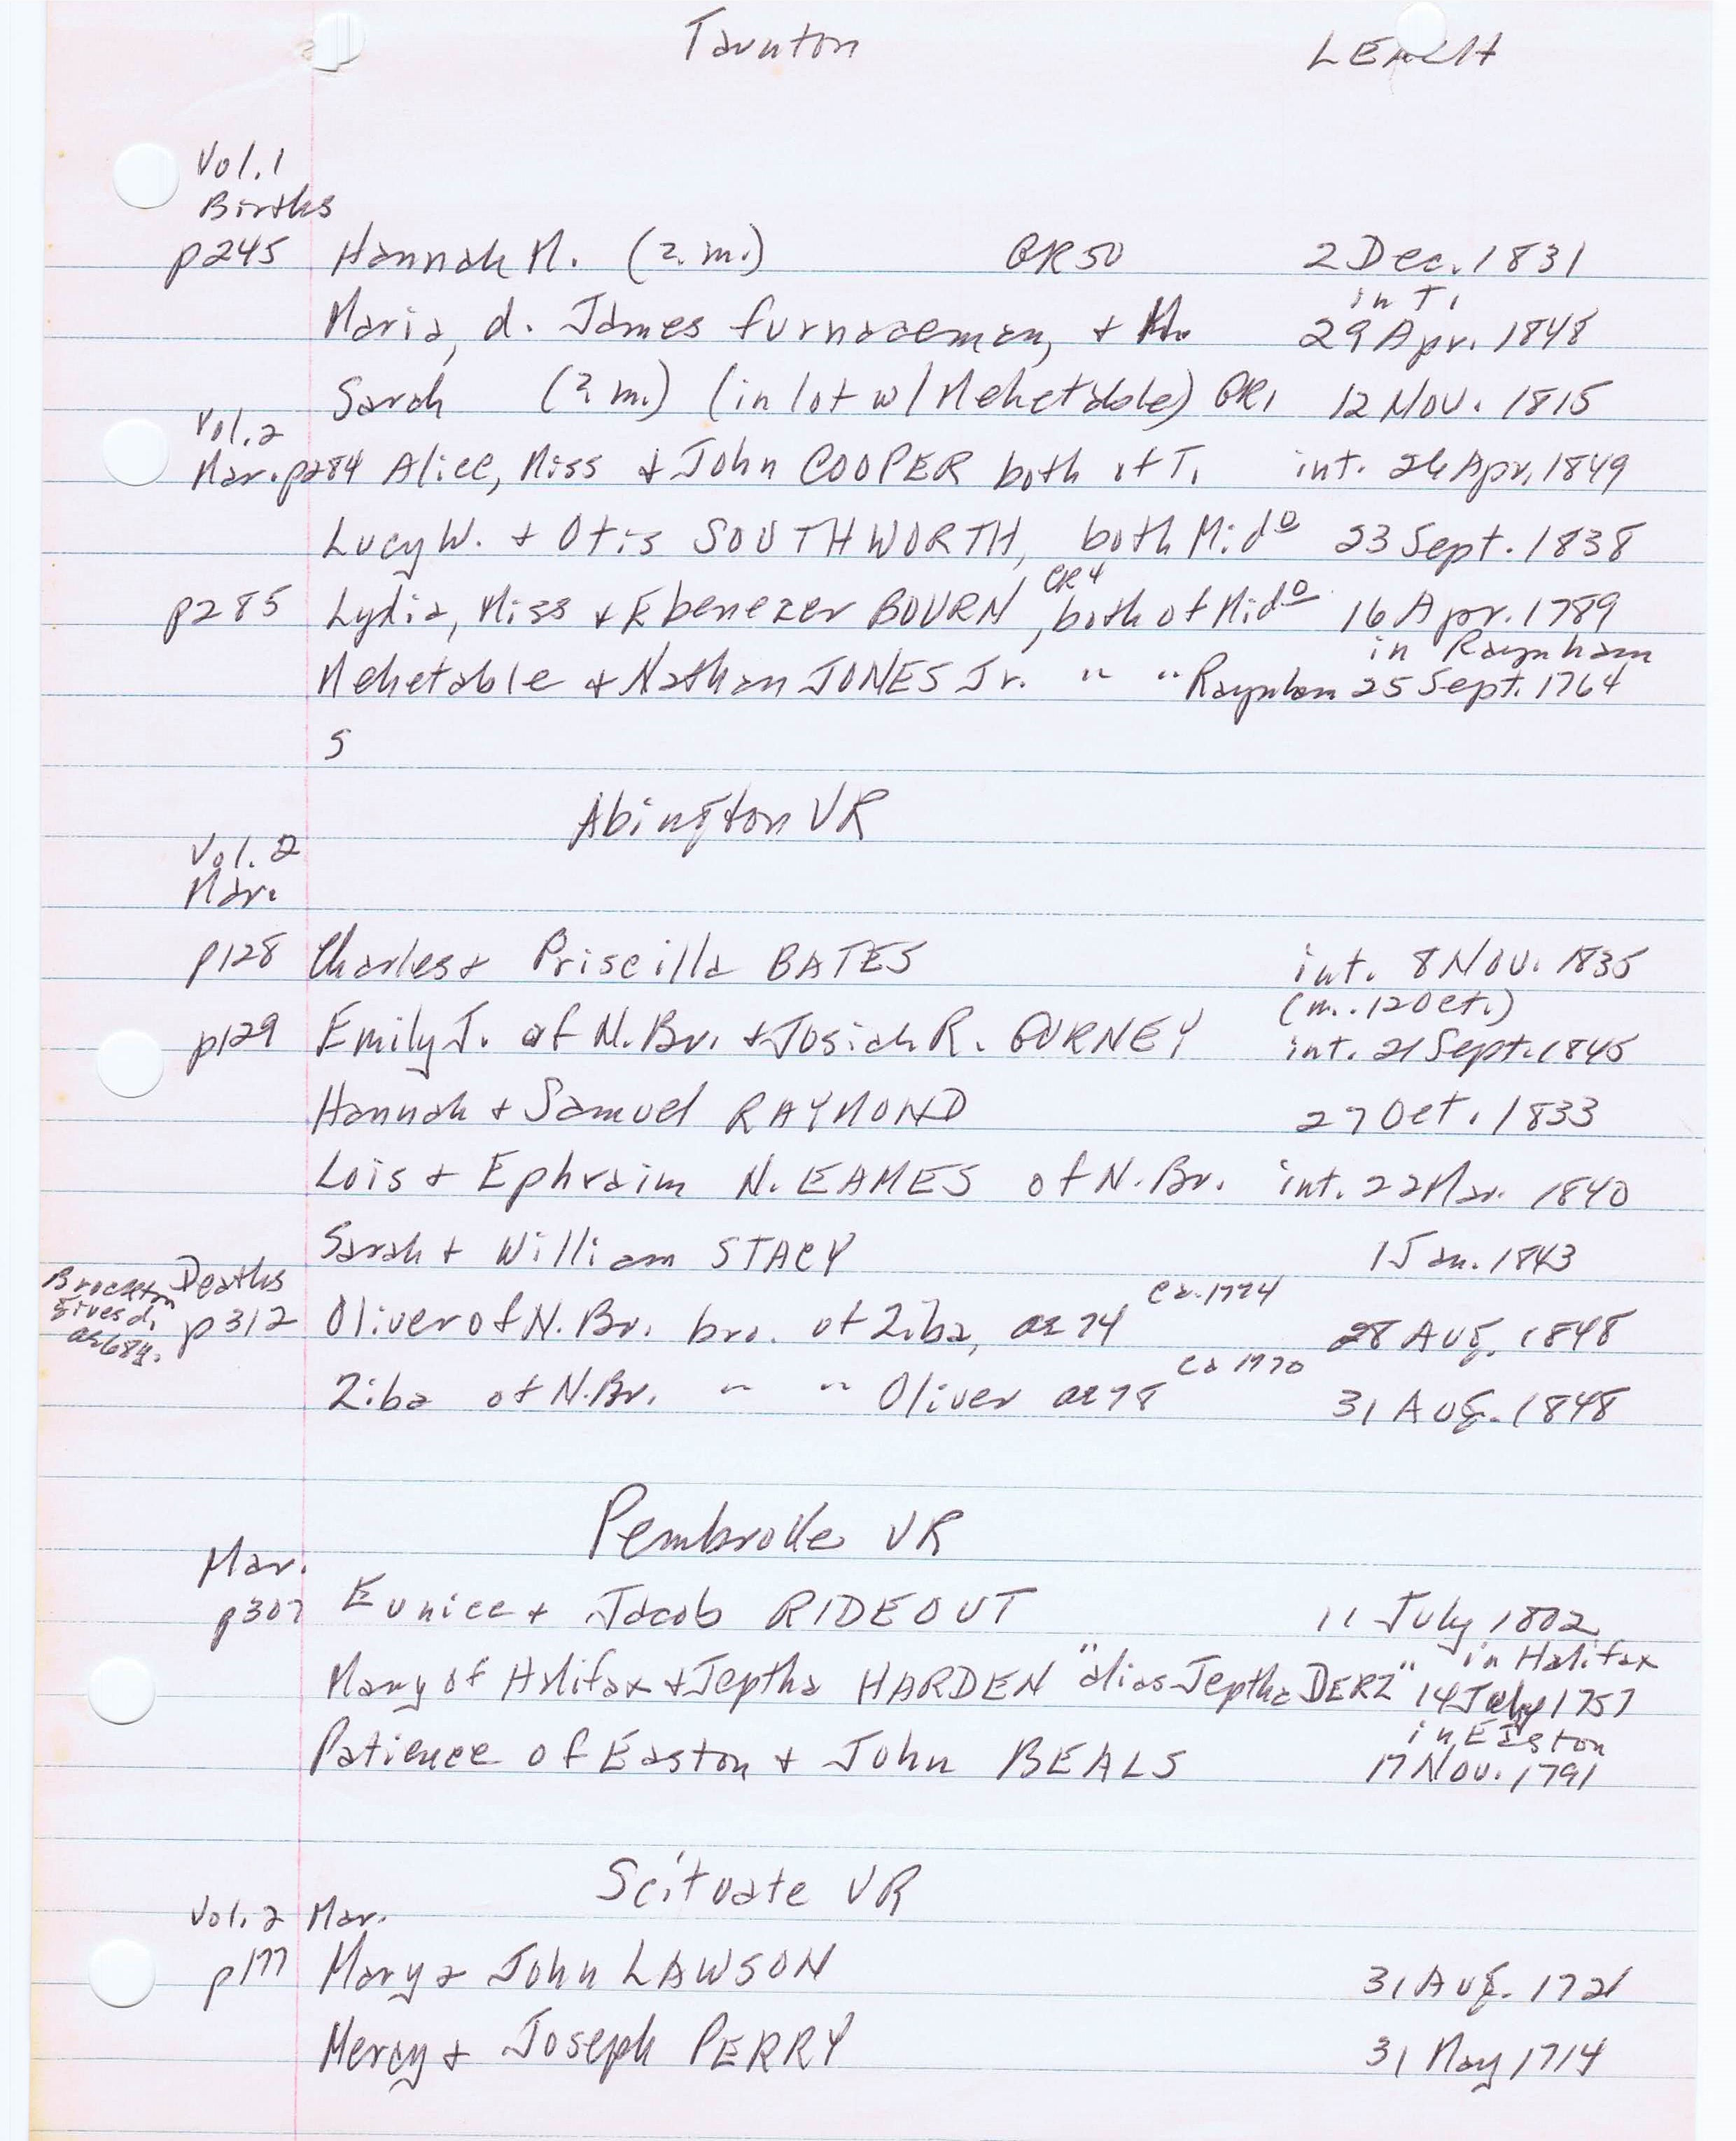 Taunton LEACH
Vol.1
Births
p245 Hannah M. (2.m.) GR50 2 Dec. 1831
in T.
Maria, d. James furnaceman, + M. 29 Apr. 1848
Sarah (2 m.) (in lot w/ Mehetable) GR1 12 Nov. 1815
Vol.2
Mar. p284 Alice, Miss + John COOPER both of T. int. 26 Apr. 1849
Lucy W. + Otis SOUTHWORTH, both Mido 23 Sept. 1838
CR4
p285 Lydia, Miss + Ebenezer BOURN, both of Mido 16 Apr. 1789
in Raynham
Mehetable + Nathan JONES Jr. " " Raynham 25 Sept. 1764
S
Abington VR
Vol. 2
Mar.
p128 Charles + Priscilla BATES int. 8 Nov. 1835
(m. 12 Oct.)
p129 Emily J. of N. Br. + Josiah R. GURNEY int. 21 Sept. 1845
Hannah + Samuel RAYMOND 27 Oct. 1833
Lois + Ephraim N. EAMES of N. Br. int. 22 Mar. 1840
Sarah + William STACY 1 Jan. 1843
Brockton Deaths
gives d. ca. 1774
ae 68y. p312 Oliver of N. Br. bro. of Ziba, ae 74 28 Aug. 1848
ca 1770
Ziba of N. Br. " " Oliver ae 78 31 Aug. 1848
Pembroke VR
Mar.
p307 Eunice + Jacob RIDEOUT 11 July 1802
in Halifax
Mary of Halifax + Jeptha HARDEN "alias Jeptha DERZ" 14 July 1757
in Easton
Patience of Easton + John BEALS 17 Nov. 1791
Scituate VR
Vol. 2 Mar.
p177 Mary + John LAWSON 31 Aug. 1721
Mercy + Joseph PERRY 31 May 1714